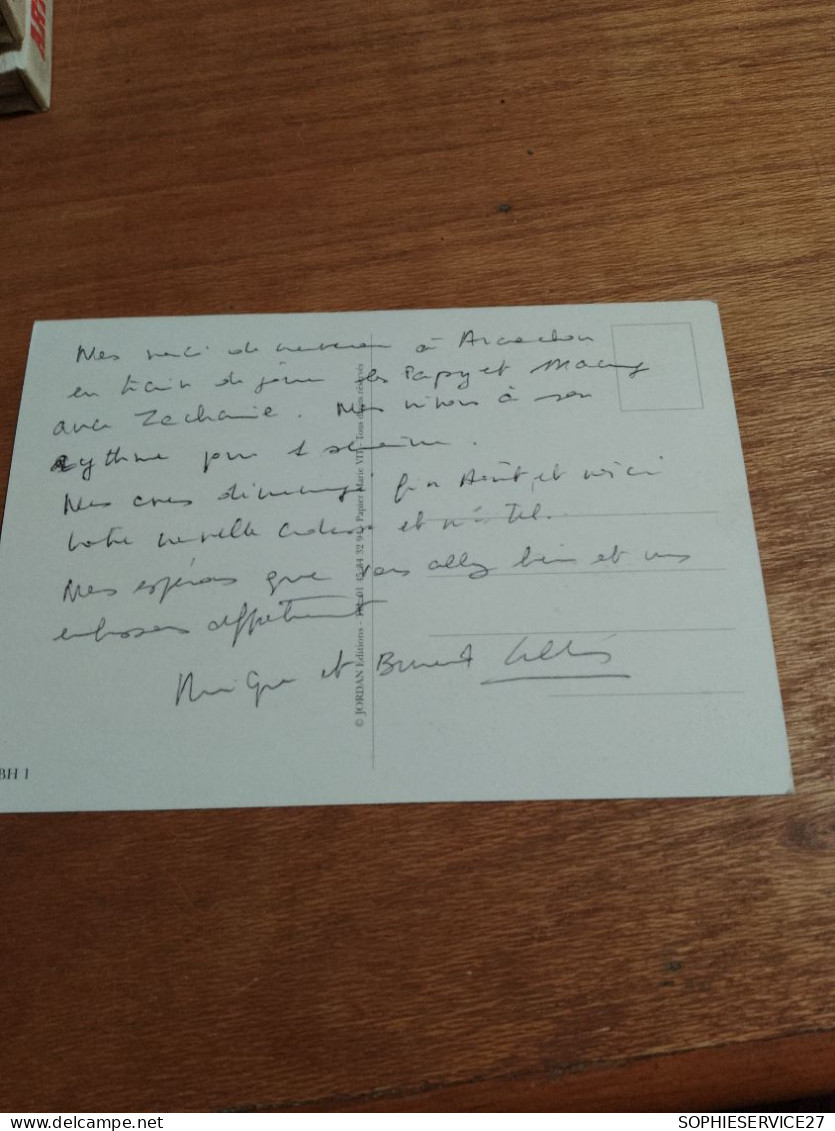 Nous voici de nouveau à Arcachon
en train de jouer les Papy et Mamy
avec Zacharie. Nous vivons à son
rythme pour 1 semaine.
Nous avons déménagé fin Août et voici
votre nouvelle adresse et n° tel.
Nous espérons que vous allez bien et vous
embrassons affectueusement
et
© JORDAN Editions - Tél. 01 45 84 32 94 - Papier Marie VIT - Tous droits réservés
BH 1
SOPHIESERVICE27